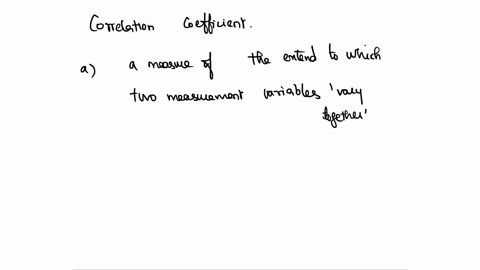 Correlation Coefficient.
a) a measure of the extend to which
two measurement variables 'vary
together'